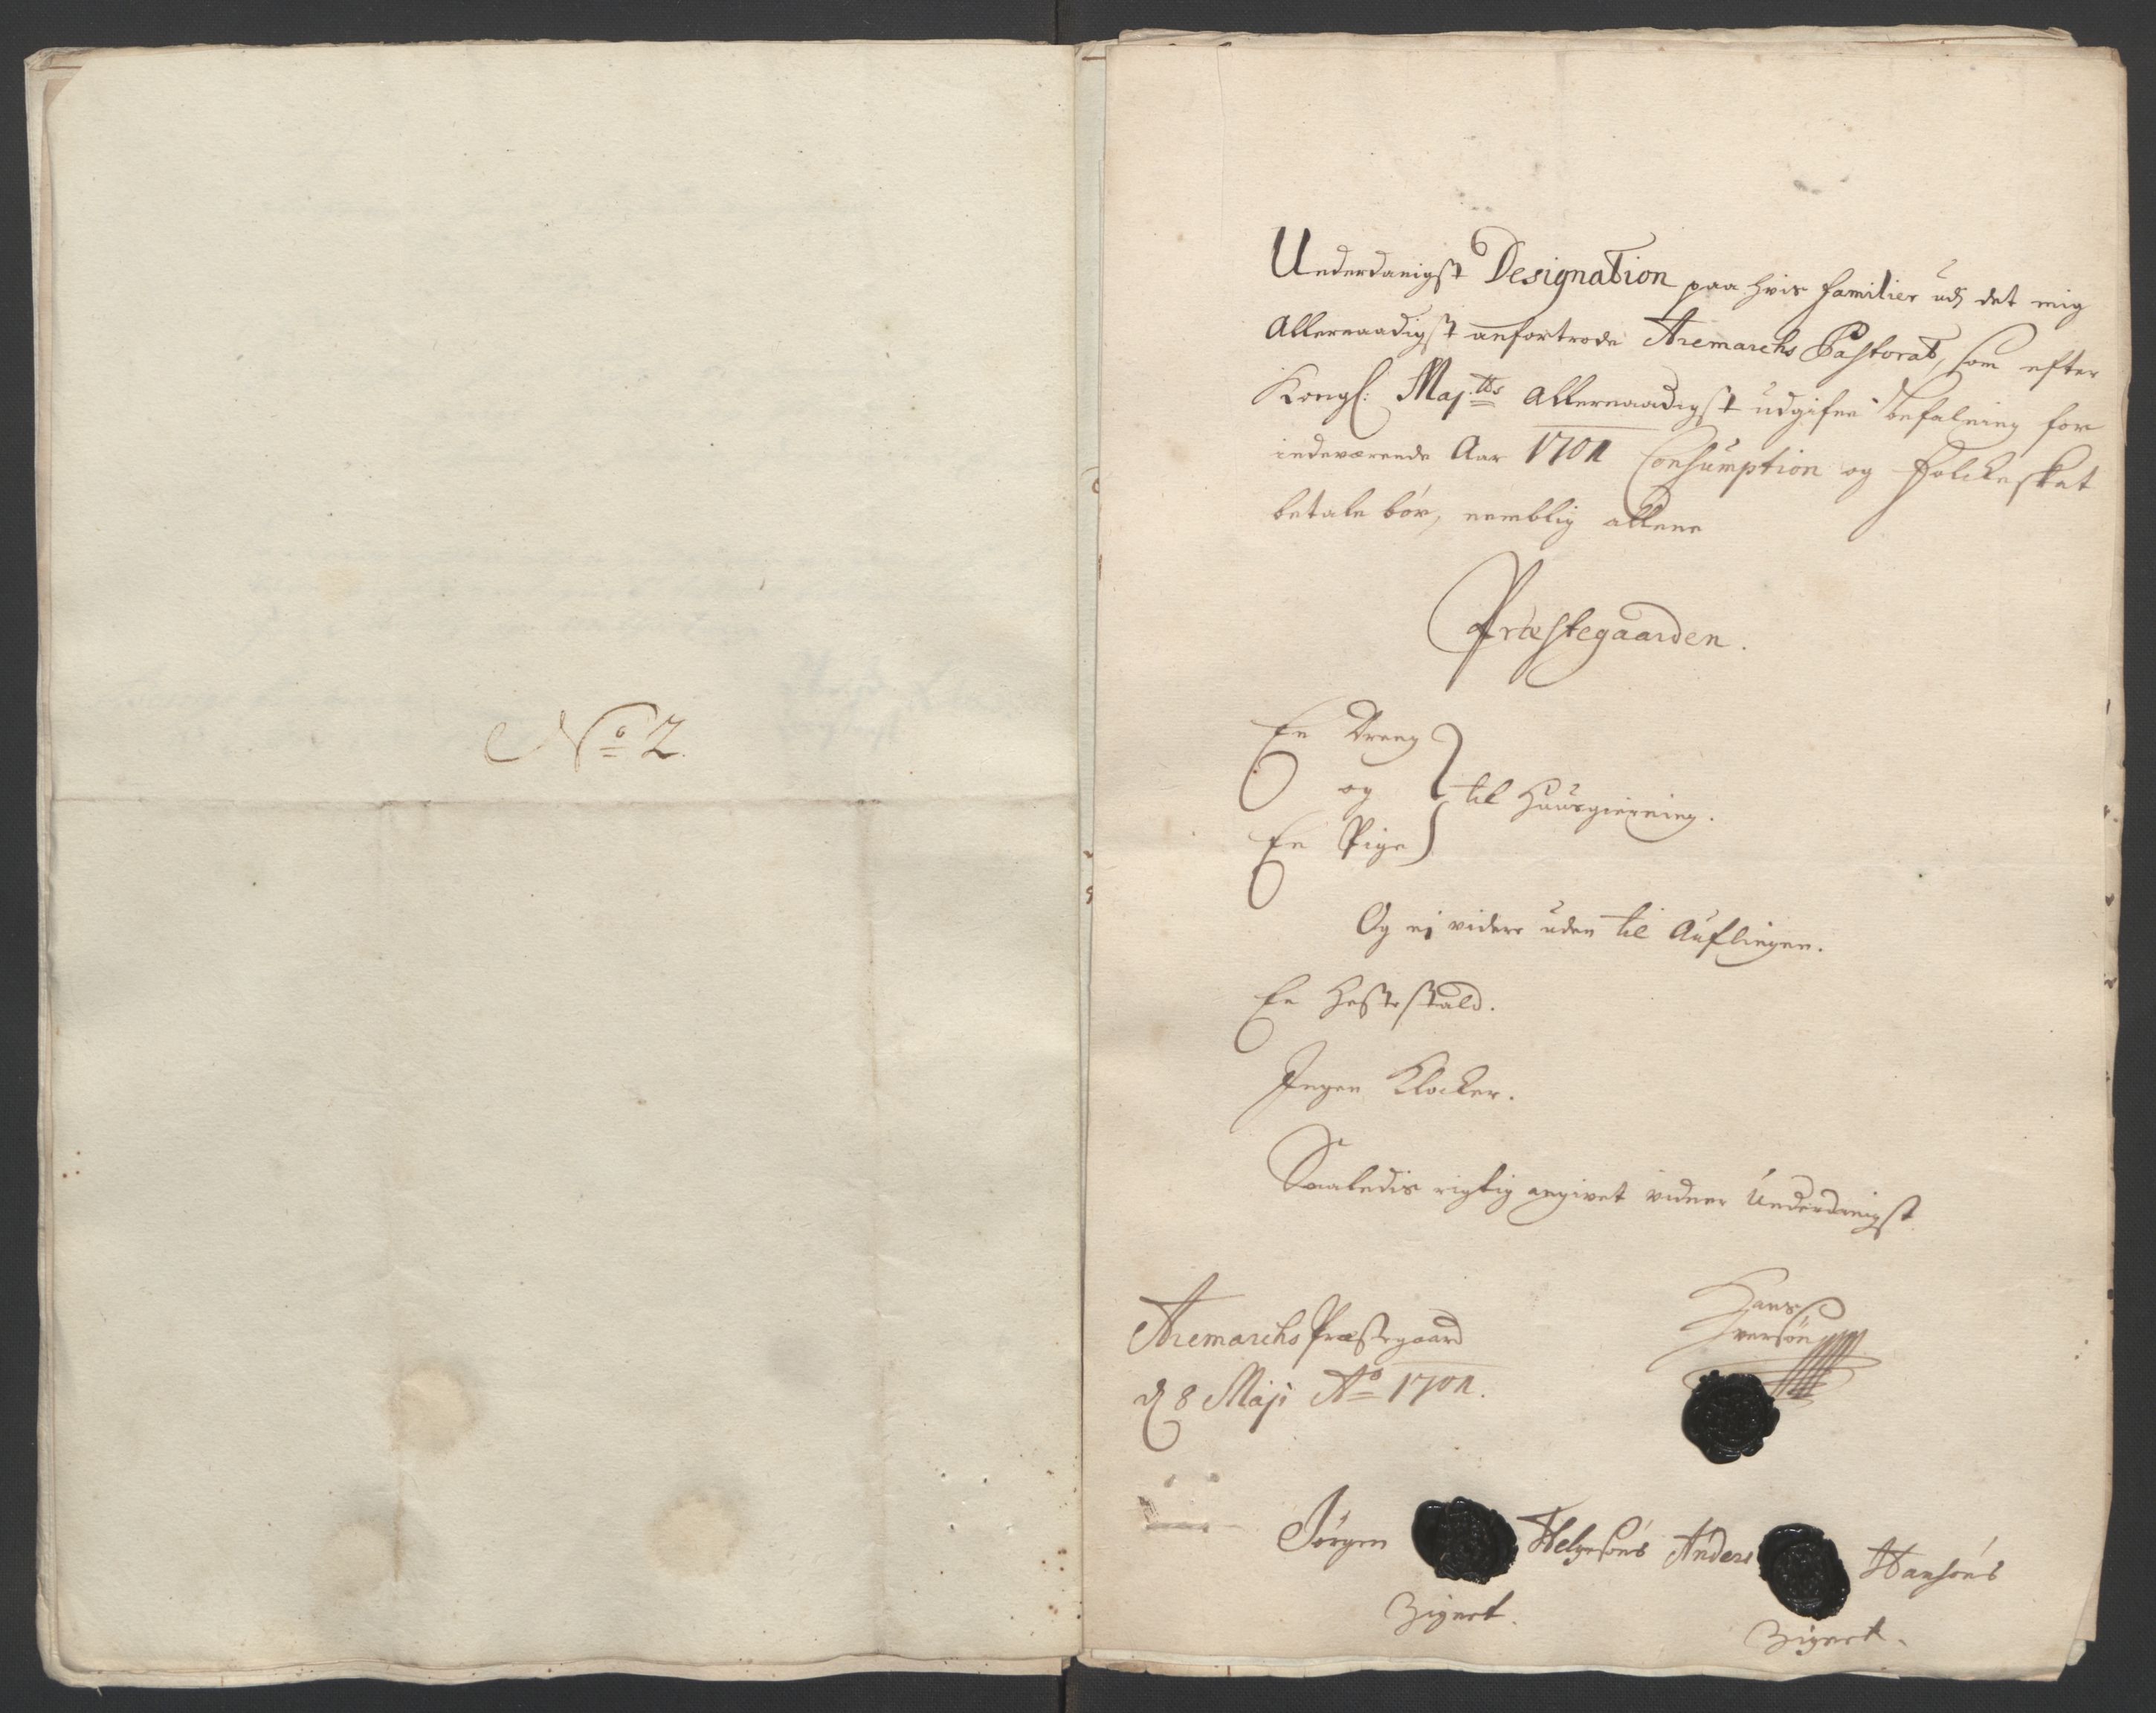 No 2.
Underdanigst Designation paa hvis familier udj det mig
Allernaadigst anfortrode Aremarchs Pastorat, som efter
Kongl: Maj:tts allernaadigst udgifne befalning for
indeværende Aar 1701 Consumption og Folckeskat
betale bør, nemblig allene
Præstegaarden.
En Dreng
og
til Huusgierning.
En Pige
Og ej videre uden til Auflingen.
En Hestestald.
Ingen Klocker.
Saaledis rigtig angivet vidner Underdanigst
Aremarchs Præstegaard
d 8 Maji Ao 1701.
Hans
Iversøn
Jørgen Helgesøns Anders Hansøns
Zignet. Zignet.